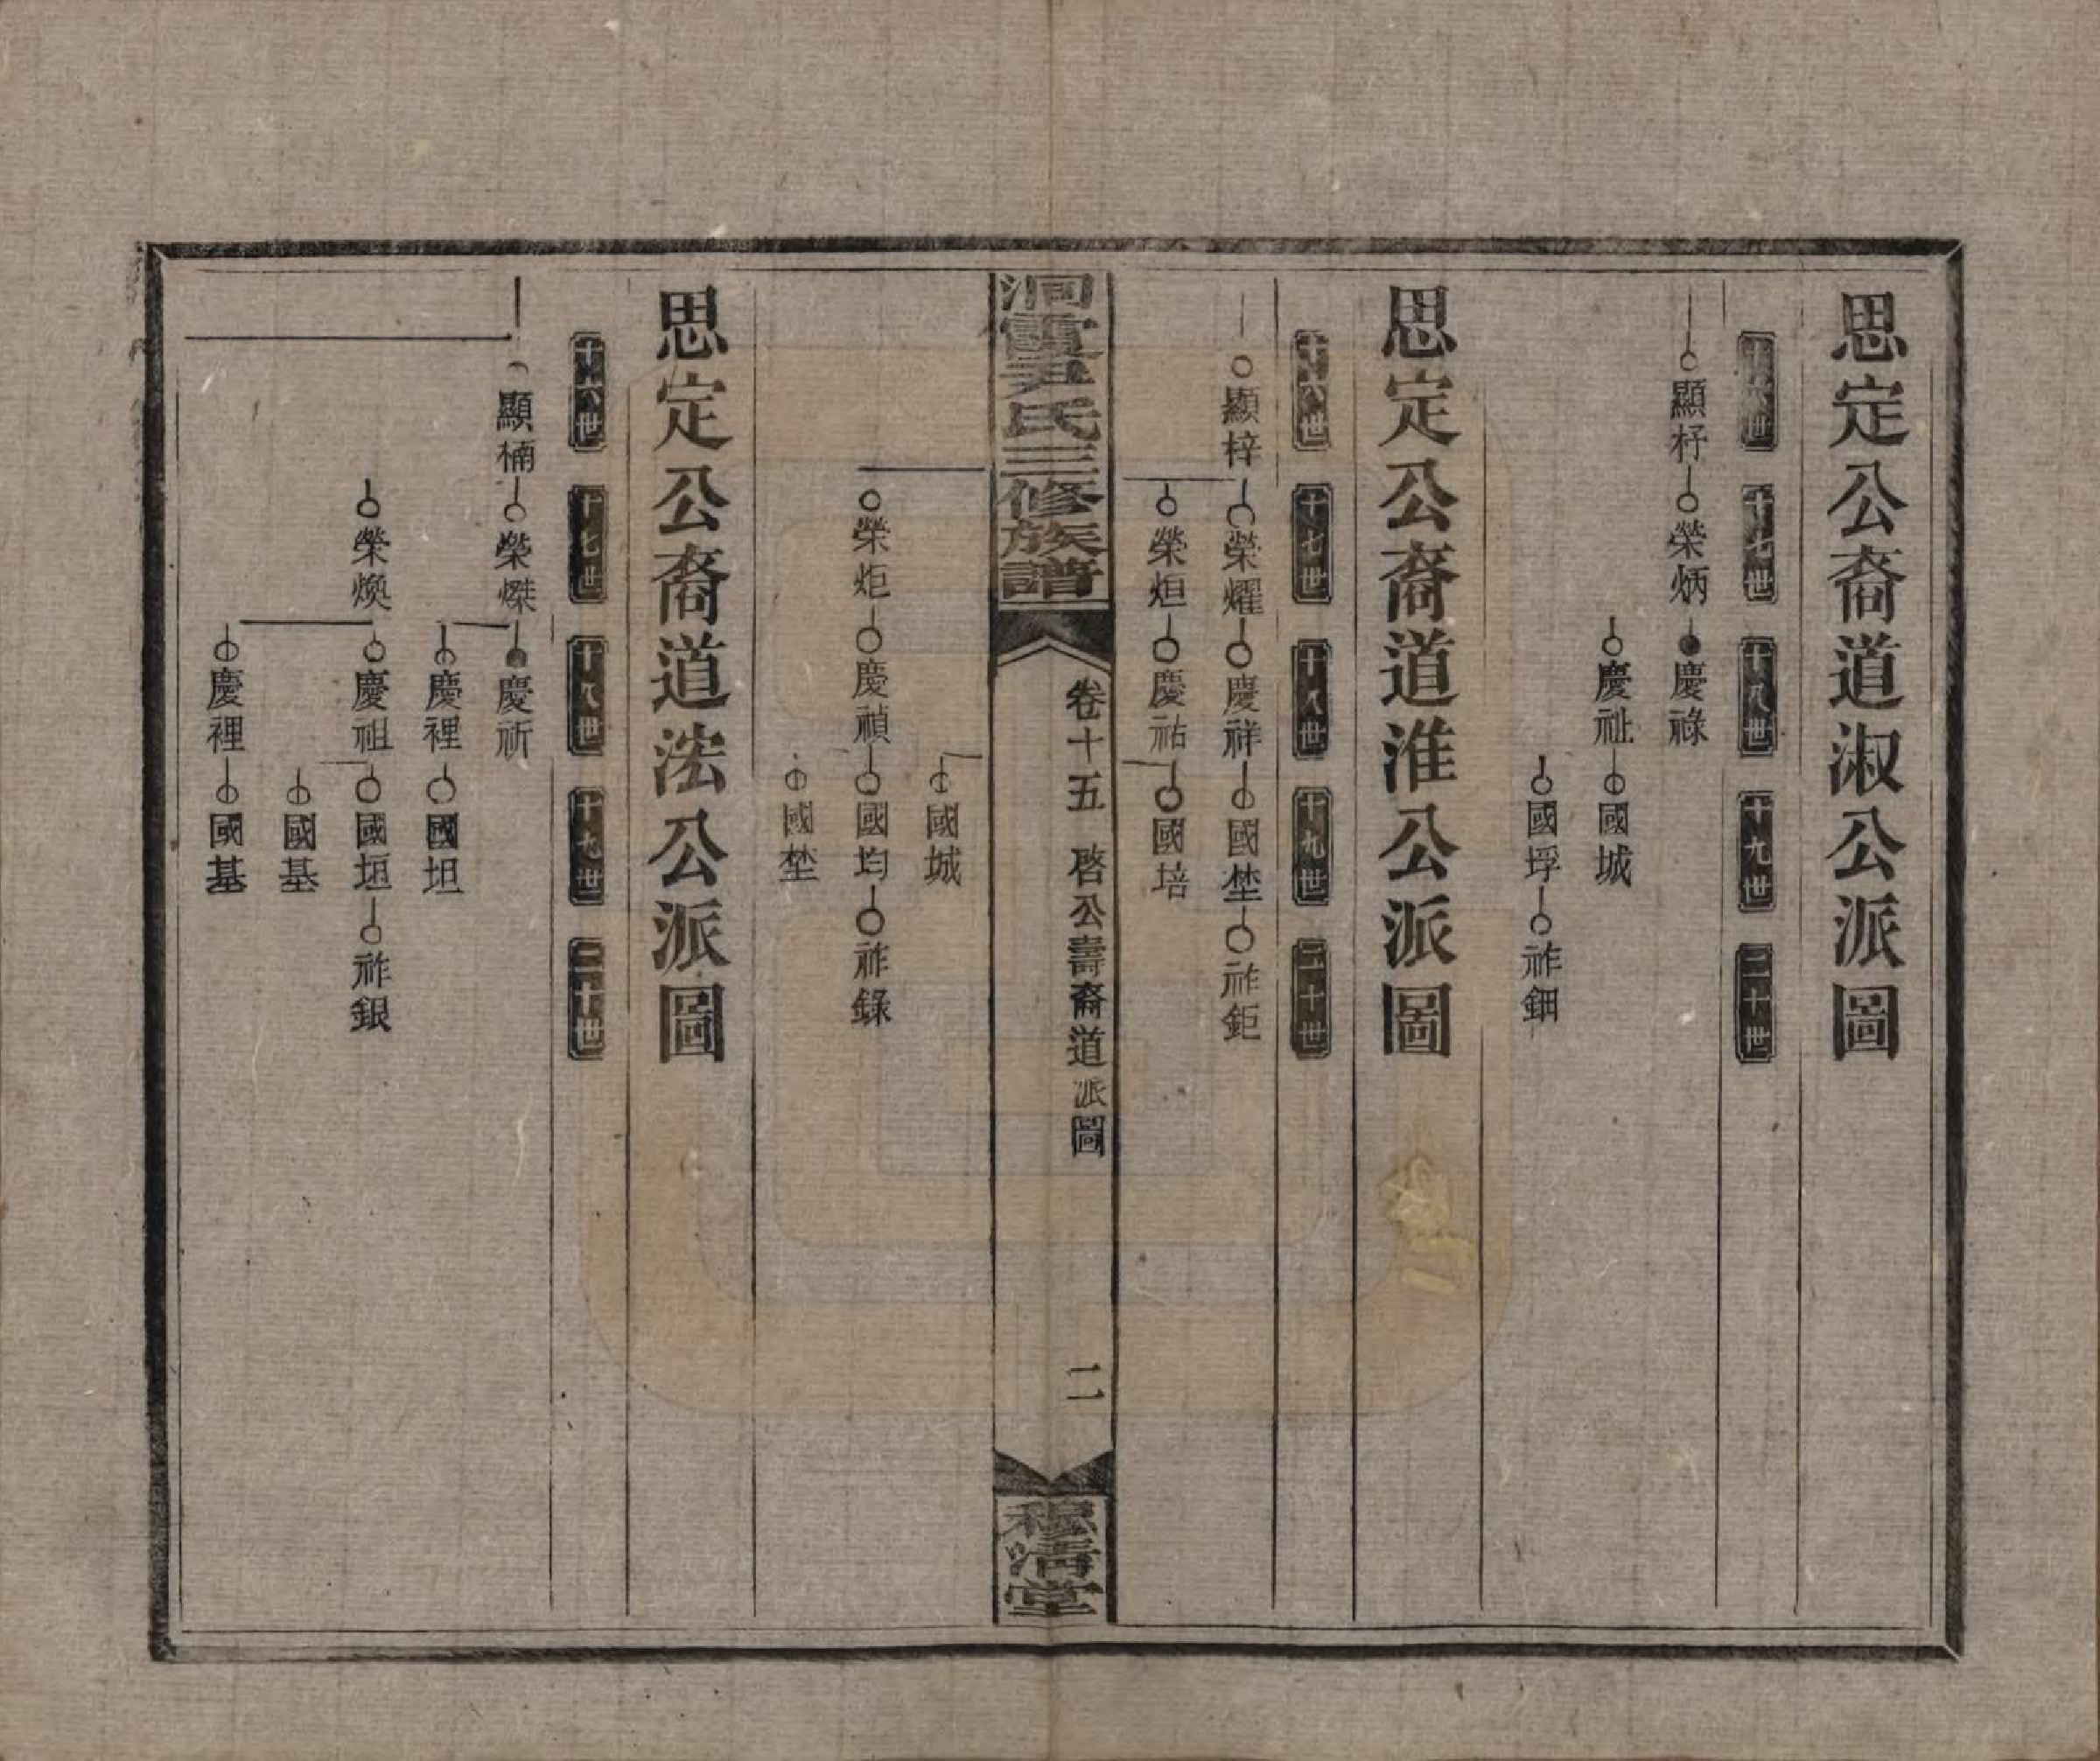 思定公裔道淑公派圖
十六世 十七世 十八世 十九世 二十世
顯杍 榮炳 慶祿
慶祉 國城
國垺 祚鈿
思定公裔道淮公派圖
十六世 十七世 十八世 十九世 二十世
顯梓 榮燿 慶祥 國埜 祚鉅
榮烜 慶祐 國培
洞霞尹氏三修族譜
卷十五 啓公壽裔道派圖
二
穆清堂
國城
榮炬 慶禎 國均 祚錄
國埜
思定公裔道浤公派圖
十六世 十七世 十八世 十九世 二十世
顯楠 榮㷤 慶祈
慶裡 國坦
榮煥 慶祖 國垣 祚銀
國基
慶裡 國基